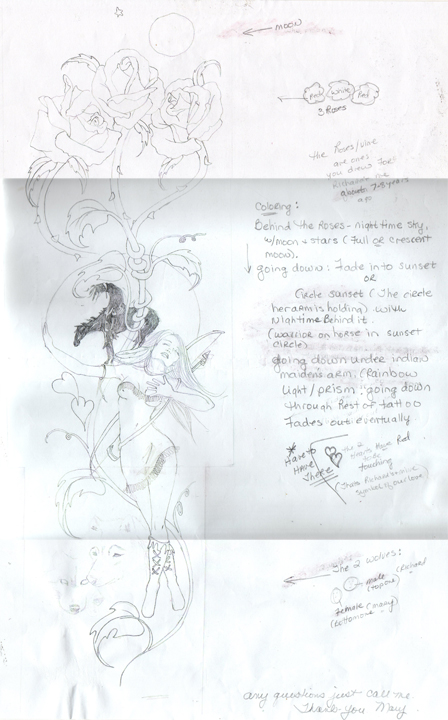 moon
Pink White Red
3 Roses
the Roses/vine
are ones
you drew for
Richard's
about 7-8 years
ago
Coloring:
Behind the Roses - night time sky,
w/moon & stars (full or crescent
moon),
going down: Fade into sunset
OR
Circle sunset (The circle
her arm is holding) with
Nighttime Behind it.
(warrior on horse in sunset
circle)
going down under indian
maidens arm, (Rainbow
light/prism going down
through Rest of tattoo
Fades out eventually
* Have to
Have
These
The 2
hearts Have Red
touching
The 2 wolves:
male (Richard
(top one)
Female (mary)
(bottom one)
any questions just call me.
Thank-You Mary